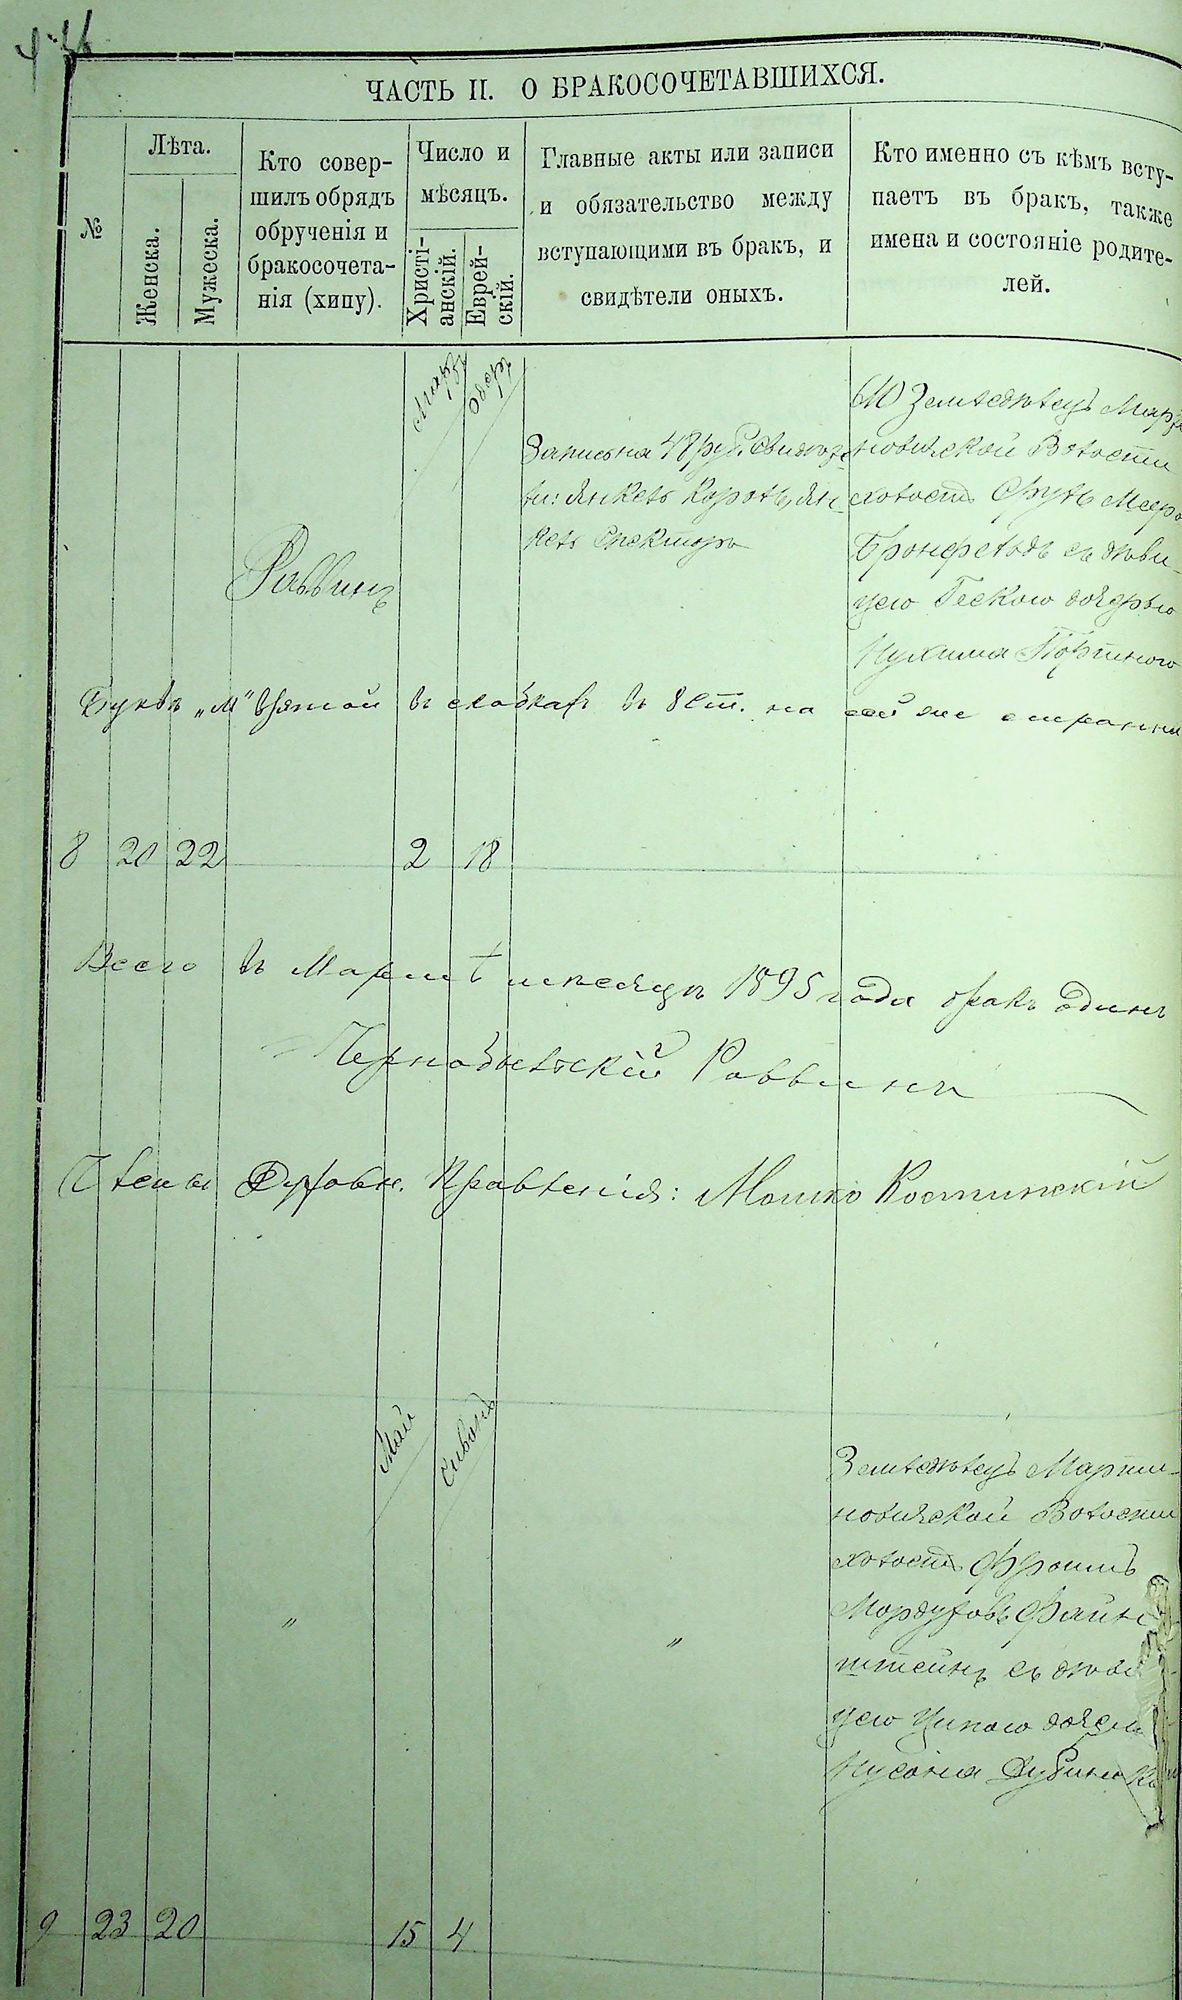 ЧАСТЬ II. О БРАКОСОЧЕТАВШИХСЯ.
№
Лѣта.
Женска.
Мужеска.
Кто совер-
шилъ обрядъ
обрученія и
бракосочета-
нія (хипу).
Число и
мѣсяцъ.
Христі-
анскій.
Еврей-
скій.
Главные акты или записи
и обязательство между
вступающими въ бракъ, и
свидѣтели оныхъ.
Кто именно съ кѣмъ всту-
паетъ въ бракъ, также
имена и состояніе родите-
лей.
8
20
22
Раввинъ
2
18
Запись на 48 руб. свидѣте
ли: Янкель Коротъ, Ян-
кель Спекторъ
(М) Земледѣлецъ Март
новичской Волости
холостъ Сруль Меер
Бронфельдъ съ дѣви-
цею Гескою дочерью
Нухима Портного
Буквъ „М" взятой въ скобкахъ въ 8 ст. на сей же страницѣ
Всего въ Мартѣ мѣсяцѣ 1895 года бракъ одинъ
Чернобыльскій Раввинъ
Члены Духовн. Правленія: Мошко Костинскій
9
23
20
"
Май
15
Сиванъ
4
"
Земледѣлецъ Марти-
новичской Волости
холостъ Фроимъ
Мордуховъ Файн
штейнъ съ дѣви
цею Ципою дочер
Нусона Дубинск